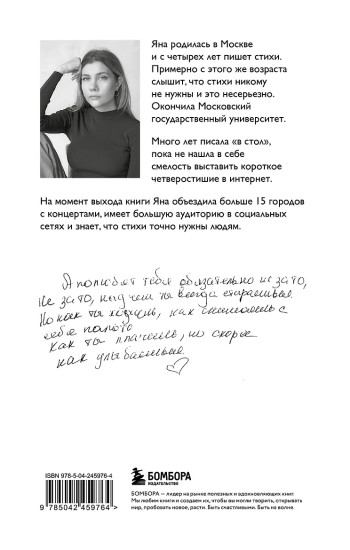 Яна родилась в Москве
и с четырех лет пишет стихи.
Примерно с этого же возраста
слышит, что стихи никому
не нужны и это несерьезно.
Окончила Московский
государственный университет.
Много лет писала «в стол»,
пока не нашла в себе
смелость выставить короткое
четверостишие в интернет.
На момент выхода книги Яна объездила больше 15 городов
с концертами, имеет большую аудиторию в социальных
сетях и знает, что стихи точно нужны людям.
А полюбят тебя обязательно не за то,
Не за то, над чем ты всегда стараешься,
Но как ты ходишь, как снимаешь с
себя пальто
как ты плачешь, но скорее
как улыбаешься.
ISBN 978-5-04-245976-4
9 785042 459764 >
БОМБОРА
ИЗДАТЕЛЬСТВО
БОМБОРА – лидер на рынке полезных и вдохновляющих книг.
Мы любим книги и создаем их, чтобы вы могли творить, открывать
мир, пробовать новое, расти. Быть счастливыми. Быть на волне.